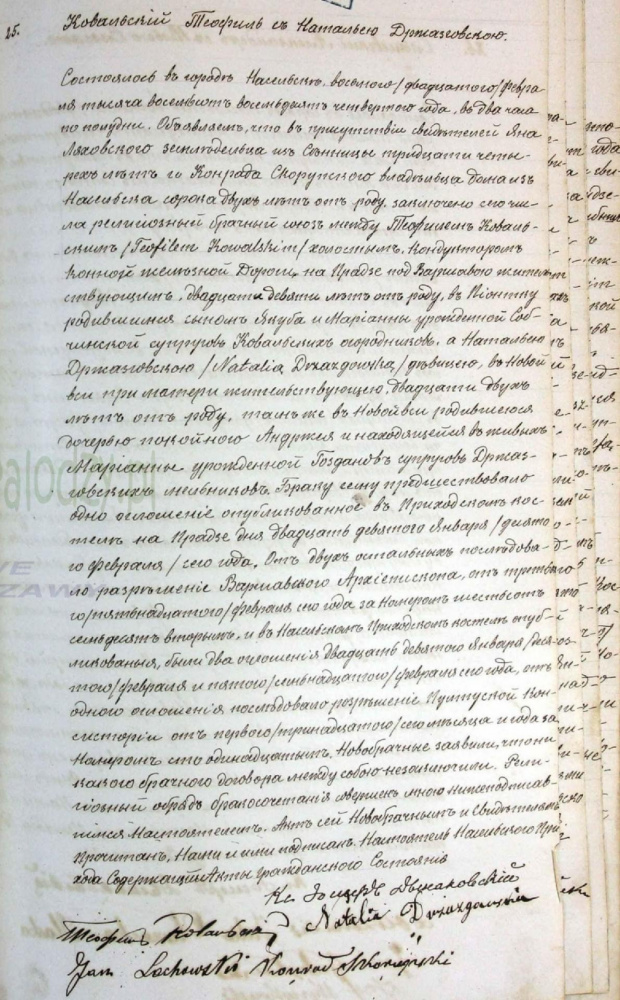 25.
Ковальскій Теофиль съ Натальею Држазговскою.
Состоялось въ городѣ Насельскѣ, восьмого /двадцатого/ Февра-
ля тысяча восемьсотъ восемьдесятъ четвертого года, въ два часа
по полудни. Объявляемъ, что въ присутствіи свидѣтелей Яна
Ляховского земледѣльца изъ Сѣнницы тридцати четы-
рехъ лѣтъ и Конрада Скорупского владѣльца дома изъ
Насельска сорока двухъ лѣтъ отъ роду, заключено сего чи-
сла религіозный брачный союзъ между Теофилемъ Коваль-
скимъ /Teofilem Kowalskim/ холостымъ, Кондукторомъ
конной желѣзной Дороги, на Прадзе подъ Варшавою житель-
ствующимъ, двадцати девяти лѣтъ отъ роду, въ Піонтку
родившимся сыномъ Якуба и Маріанны урожденной Соб-
чинской супруговъ Ковальскихъ огородниковъ, а Натальею
Држазговскою /Natalia Drzazgowska/ дѣвицею, въ Новой
вси при матери жительствующею, двадцати двухъ
лѣтъ отъ роду, тамъ же въ Новой вси родившеюся
дочерью покойного Андржея и находящейся въ живыхъ
Маріанны урожденной Гоздановъ супруговъ Држаз-
говскихъ мельниковъ. Браку сему предшествовало
одно оглошеніе опубликованное въ Приходскомъ кос-
телѣ на Прадзе дня двадцать девятого Января /десято
го Февраля/ сего года. Отъ двухъ остальныхъ послѣдова-
ло разрѣшеніе Варшавского Архіепископа, отъ третьяго
/пятьнадцатого/ Февраля сего года за номеромъ шестьсотъ
семьдесятъ вторымъ, и въ Насельскомъ Приходскомъ костелѣ опуб-
ликованыя, были два оглошенія двадцать девятого Января /деся-
того/ Февраля и пятого /семьнадцатого/ Февраля сего года, отъ
одного оглошенія послѣдовало разрѣшеніе Пултуской Кон-
систоріи отъ первого /тринадцатого/ сего мѣсяца и года за
Номеромъ сто одинадцатымъ. Новобрачные заявили, что ни
какого брачного договора между собою незаключили. Рели-
гіозный обрядъ бракосочетанія совершенъ мною нижеподписав-
шимся Настоятелемъ. Актъ сей Новобрачнымъ и Свидѣтелямъ
Прочитанъ, Нами и ими подписанъ. Настоятель Насельского При-
хода Содержащій Акты Гражданского Состоянія
Кс.
Natalia Drzazgowska
Теофиль
Jan Lachowski Konrad Skorupski